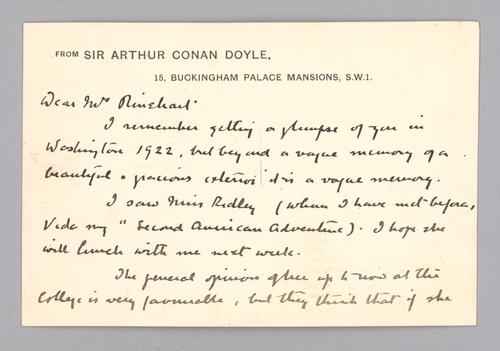 FROM SIR ARTHUR CONAN DOYLE,
15, BUCKINGHAM PALACE MANSIONS, S.W.1.
Dear Mrs Rinehart
I remember getting a glimpse of you in
Washington 1922, but beyond a vague memory of a
beautiful & gracious exterior it is a vague memory.
I saw Miss Ridley (whom I have met before,
Vide my "Second American Adventure). I hope she
will lunch with me next week.
The general opinion of her up to now at the
College is very favourable, but they think that if she